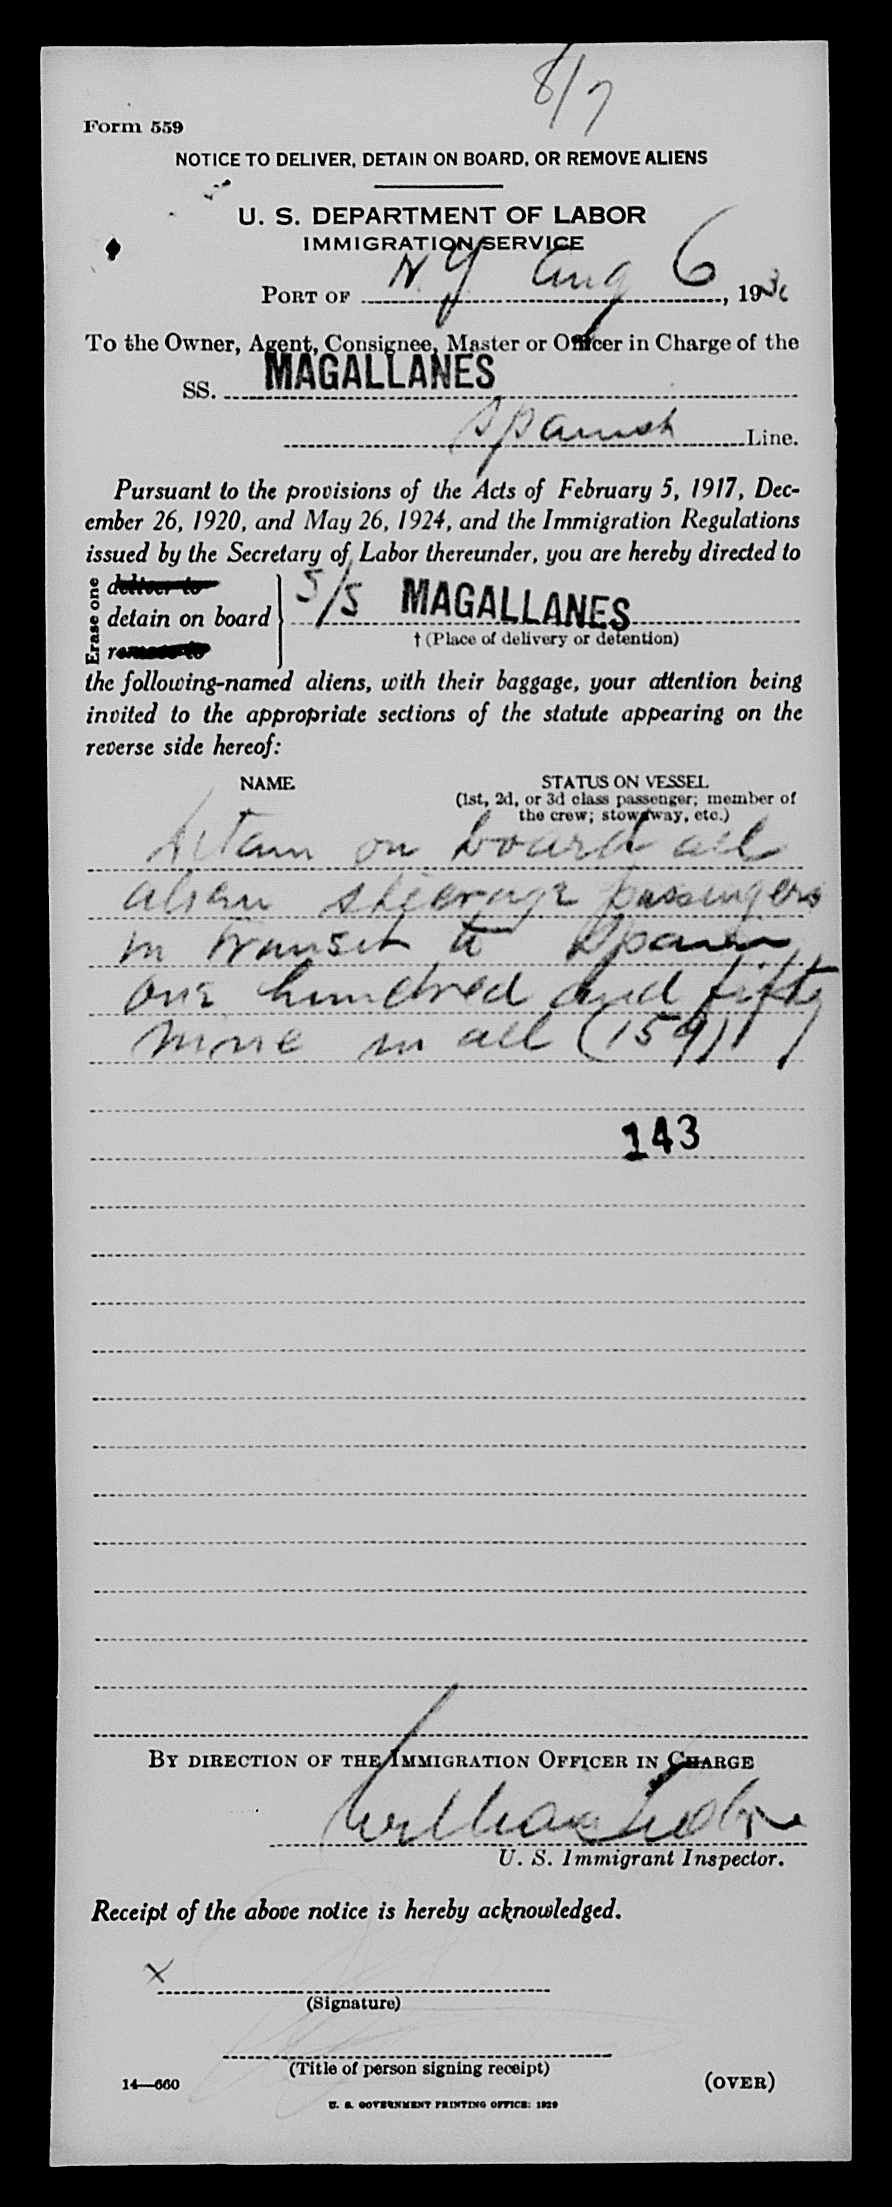 8/7
Form 559
NOTICE TO DELIVER, DETAIN ON BOARD, OR REMOVE ALIENS
U. S. DEPARTMENT OF LABOR
IMMIGRATION SERVICE
PORT OF N Y Aug 6, 1930
To the Owner, Agent, Consignee, Master or Officer in Charge of the
SS. MAGALLANES
Spanish Line.
Pursuant to the provisions of the Acts of February 5, 1917, Dec-
ember 26, 1920, and May 26, 1924, and the Immigration Regulations
issued by the Secretary of Labor thereunder, you are hereby directed to
Erase one
deliver to
detain on board S/S MAGALLANES
remove to
† (Place of delivery or detention)
the following-named aliens, with their baggage, your attention being
invited to the appropriate sections of the statute appearing on the
reverse side hereof:
NAME STATUS ON VESSEL
(1st, 2d, or 3d class passenger; member of
the crew; stowaway, etc.)
Detain on board all
alien steerage passengers
in transit to Spain
one hundred and fifty
nine in all (159)
143
BY DIRECTION OF THE IMMIGRATION OFFICER IN CHARGE
U. S. Immigrant Inspector.
Receipt of the above notice is hereby acknowledged.
x
(Signature)
(Title of person signing receipt)
14—660 (OVER)
U. S. GOVERNMENT PRINTING OFFICE: 1929